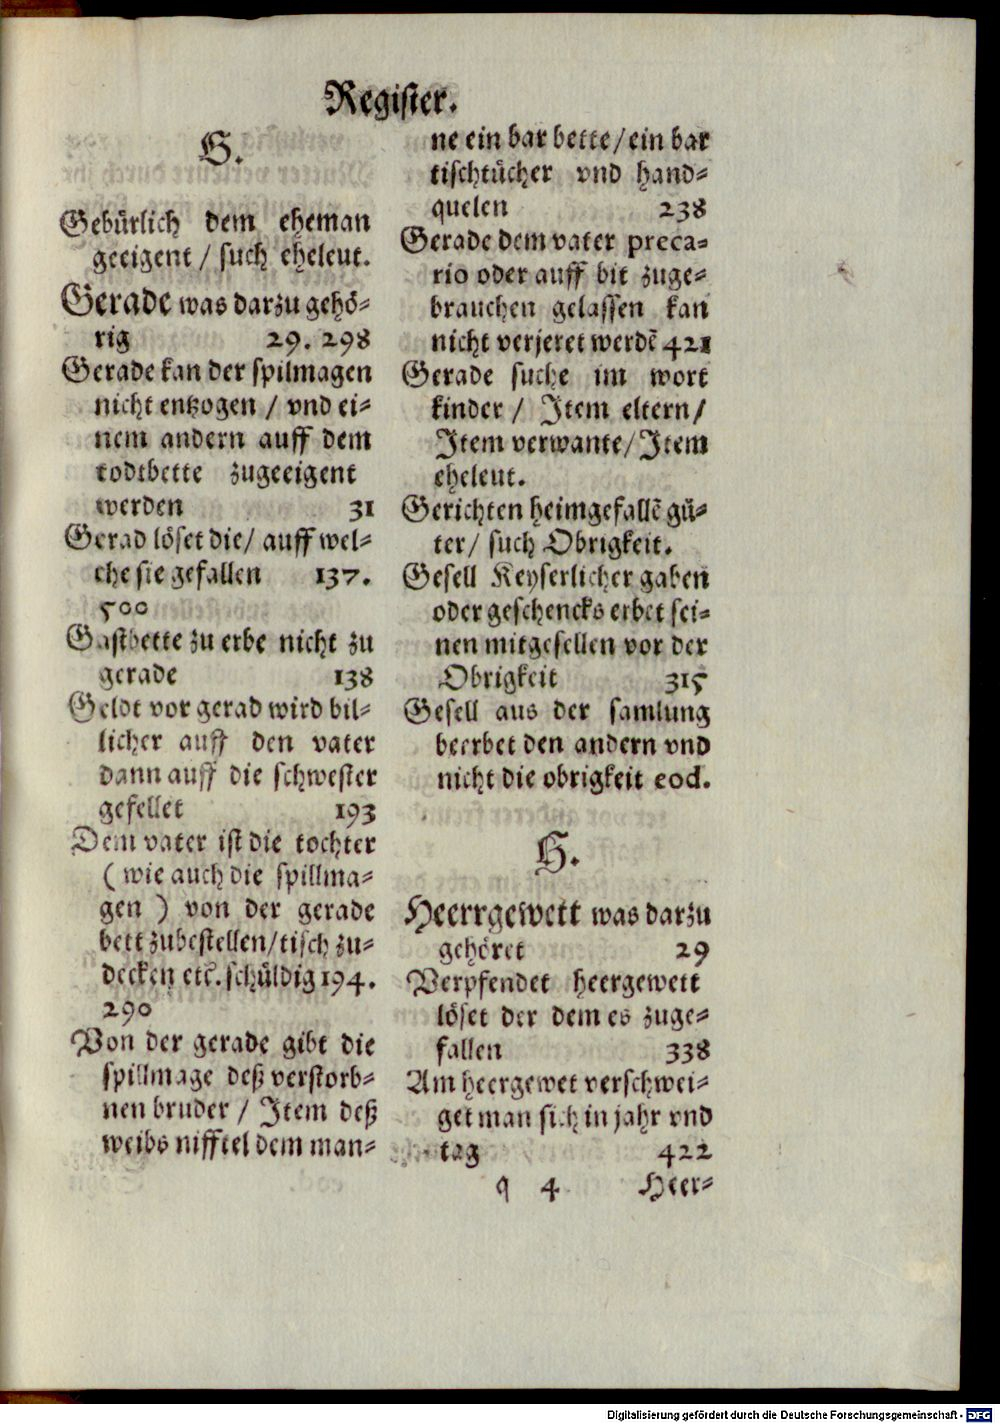 Register.
G.
Gebürlich dem eheman
geeigent / such eheleut.
Gerade was darzu gehö-
rig 29. 298
Gerade kan der spilmagen
nicht entzogen / vnd ei-
nem andern auff dem
todtbette zugeeigent
werden 31
Gerad löset die / auff wel-
che sie gefallen 137.
500
Gastbette zu erbe nicht zu
gerade 138
Geldt vor gerad wird bil-
licher auff den vater
dann auff die schwester
gefellet 193
Dem vater ist die tochter
( wie auch die spillma-
gen ) von der gerade
bett zubestellen / tisch zu-
decken etc. schüldig 194.
290
Von der gerade gibt die
spillmage deß verstorb-
nen bruder / Item deß
weibs nifftel dem man-
ne ein bar bette / ein bar
tischtücher vnd hand-
quelen 238
Gerade dem vater preca-
rio oder auff bit zuge-
brauchen gelassen kan
nicht verjeret werdẽ 421
Gerade suche im wort
kinder / Item eltern /
Item verwante / Item
eheleut.
Gerichten heimgefallẽ gü-
ter / such Obrigkeit.
Gesell Keyserlicher gaben
oder geschencks erbet sei-
nen mitgesellen vor der
Obrigkeit 315
Gesell aus der samlung
beerbet den andern vnd
nicht die obrigkeit eod.
H.
Heerrgewett was darzu
gehöret 29
Verpfendet heergewett
löset der dem es zuge-
fallen 338
Am heergewet verschwei-
get man sich in jahr vnd
tag 422
q 4 Heer-
Digitalisierung gefördert durch die Deutsche Forschungsgemeinschaft - DFG